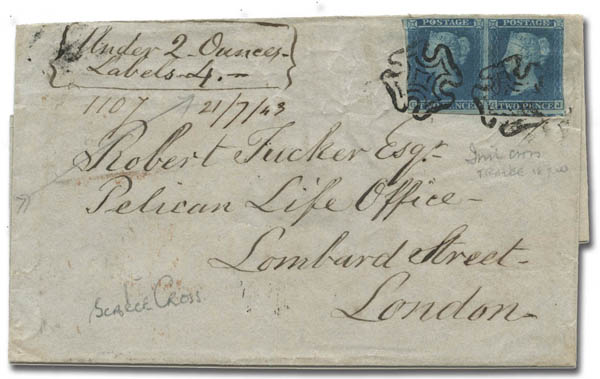 Under 2 Ounces -
Labels. 4. -
POSTAGE POSTAGE
TWO PENCE TWO PENCE
1107 21/7/43
Robert Tucker Esqr.
Pelican Life Office -
Lombard Street -
London.
Irish Cross
TRALEE
SCARCE CROSS